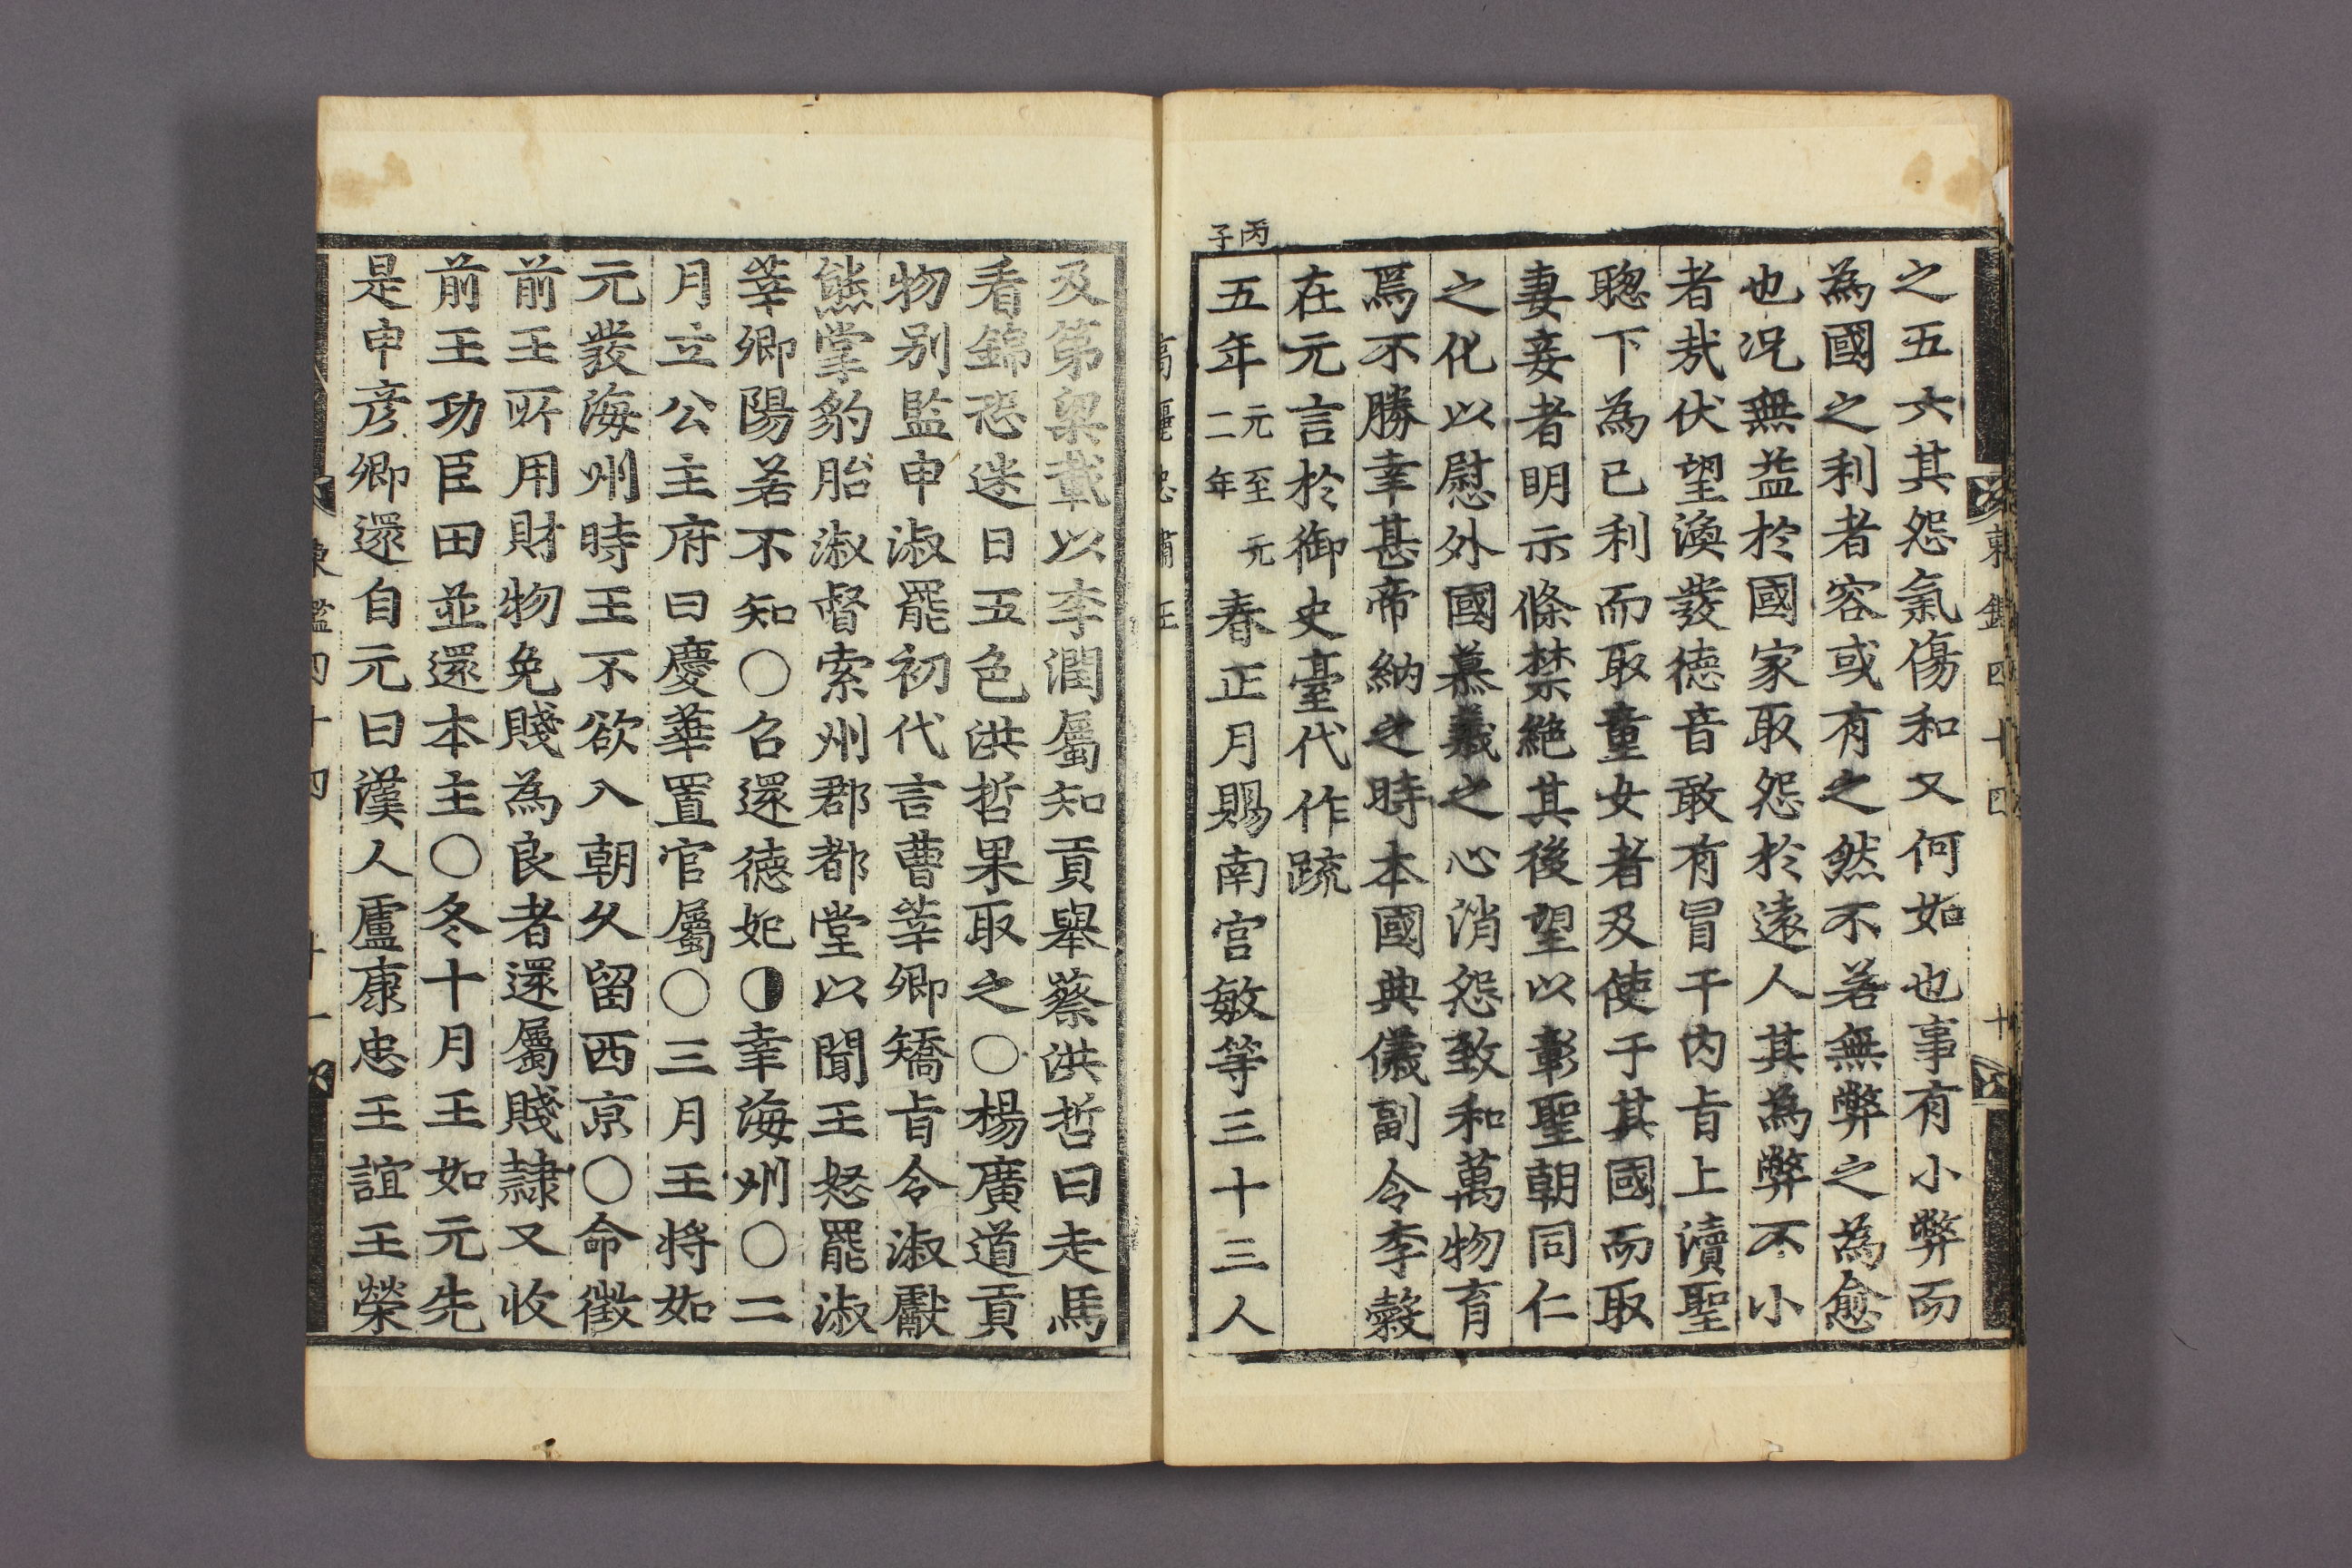 東鑑四十四
十
之五六其怨氣傷和又何如也事有小弊而
為國之利者容或有之然不若無弊之為愈
也況無益於國家取怨於遠人其為弊不小
者㢤伏望渙發德音敢有冒干內㫖上瀆聖
聦下為己利而取童女者及使于其國而取
妻妾者明示條禁絶其後望以彰聖朝同仁
之化以慰外國慕義之心消怨致和萬物育
焉不勝幸甚帝納之時本國典儀副令李糓
在元言於御史臺代作䟽
丙子
五年元至元二年春正月賜南宮敏等三十三人
高麗忠肅王
及第梁載以李潤屬知貢舉蔡洪哲曰走馬
看錦恐迷日五色洪哲果取之○楊廣道貢
物别監申淑罷初代言曹莘卿矯㫖令淑獻
熊掌豹胎淑督索州郡都堂以聞王怒罷淑
莘卿陽若不知○召還德妃◑幸海州○二
月立公主府曰慶華置官屬○三月王將如
元發海州時王不欲入朝久留西京○命徵
前王所用財物免賤為良者還屬賤隷又收
前王功臣田並還本主○冬十月王如元先
是申彦卿還自元曰漢人盧康忠王誼王榮
東鑑四十四
十一